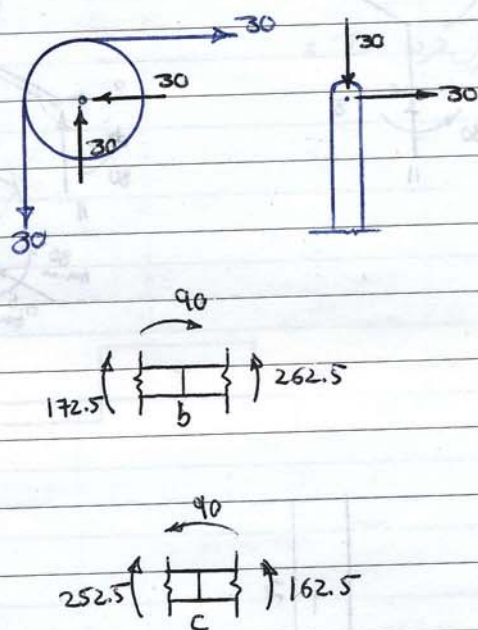 30
30
30
30
30
30
90
172.5 262.5
b
90
252.5 162.5
c